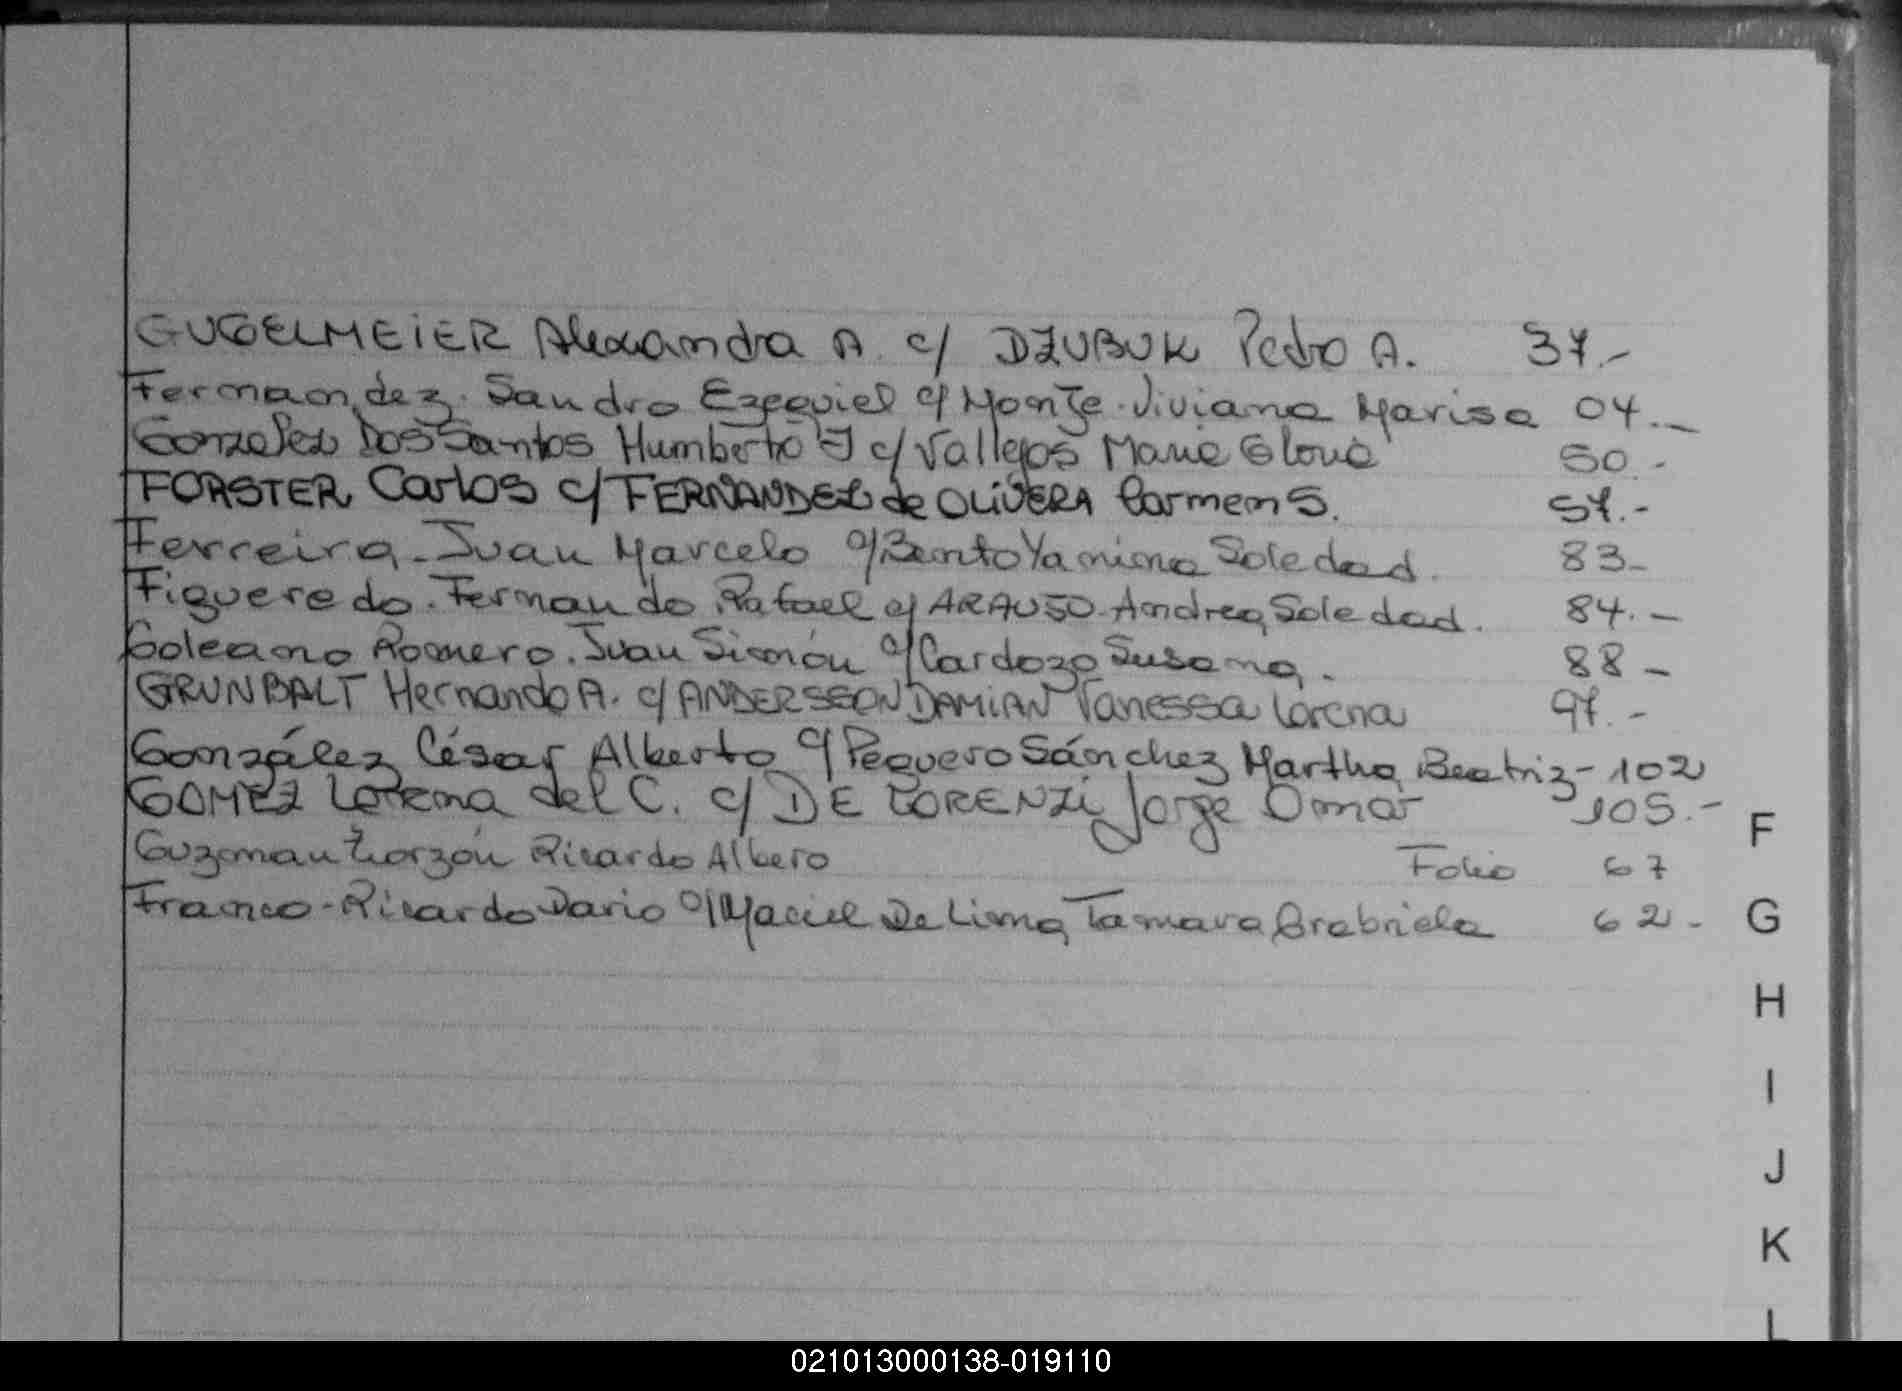 GUGELMEIER Alexandra A. c/ DZUBUK Pedro A. 37.-
Fernandez. Sandro Ezequiel c/ Monge. Viviana Marisa 04.-
Gonzalez Dos Santos Humberto J c/ Vallejos Maria Gloria 50.-
FORSTER Carlos c/ FERNANDEZ de OLIVERA Carmen S. 57.-
Ferreira. Juan Marcelo c/ Bento Yanina Soledad. 83-
Figueredo. Fernando Rafael c/ ARAUJO. Andrea Soledad. 84.-
Galeano Romero. Juan Simón c/ Cardozo Susana. 88-
GRUNBALT Hernando A. c/ ANDERSSON DAMIAN Vanessa Lorena 97.-
González César Alberto c/ Pequero Sánchez Martha Beatriz- 102
GOMEZ Lorena del C. c/ DE LORENZI Jorge Omar 105.-
Guzman Ricardo Albero Folio 67
Franco - Ricardo Dario c/ Maciel De Lima Tamara Grabriela 62-
F
G
H
I
J
K
L
021013000138-019110